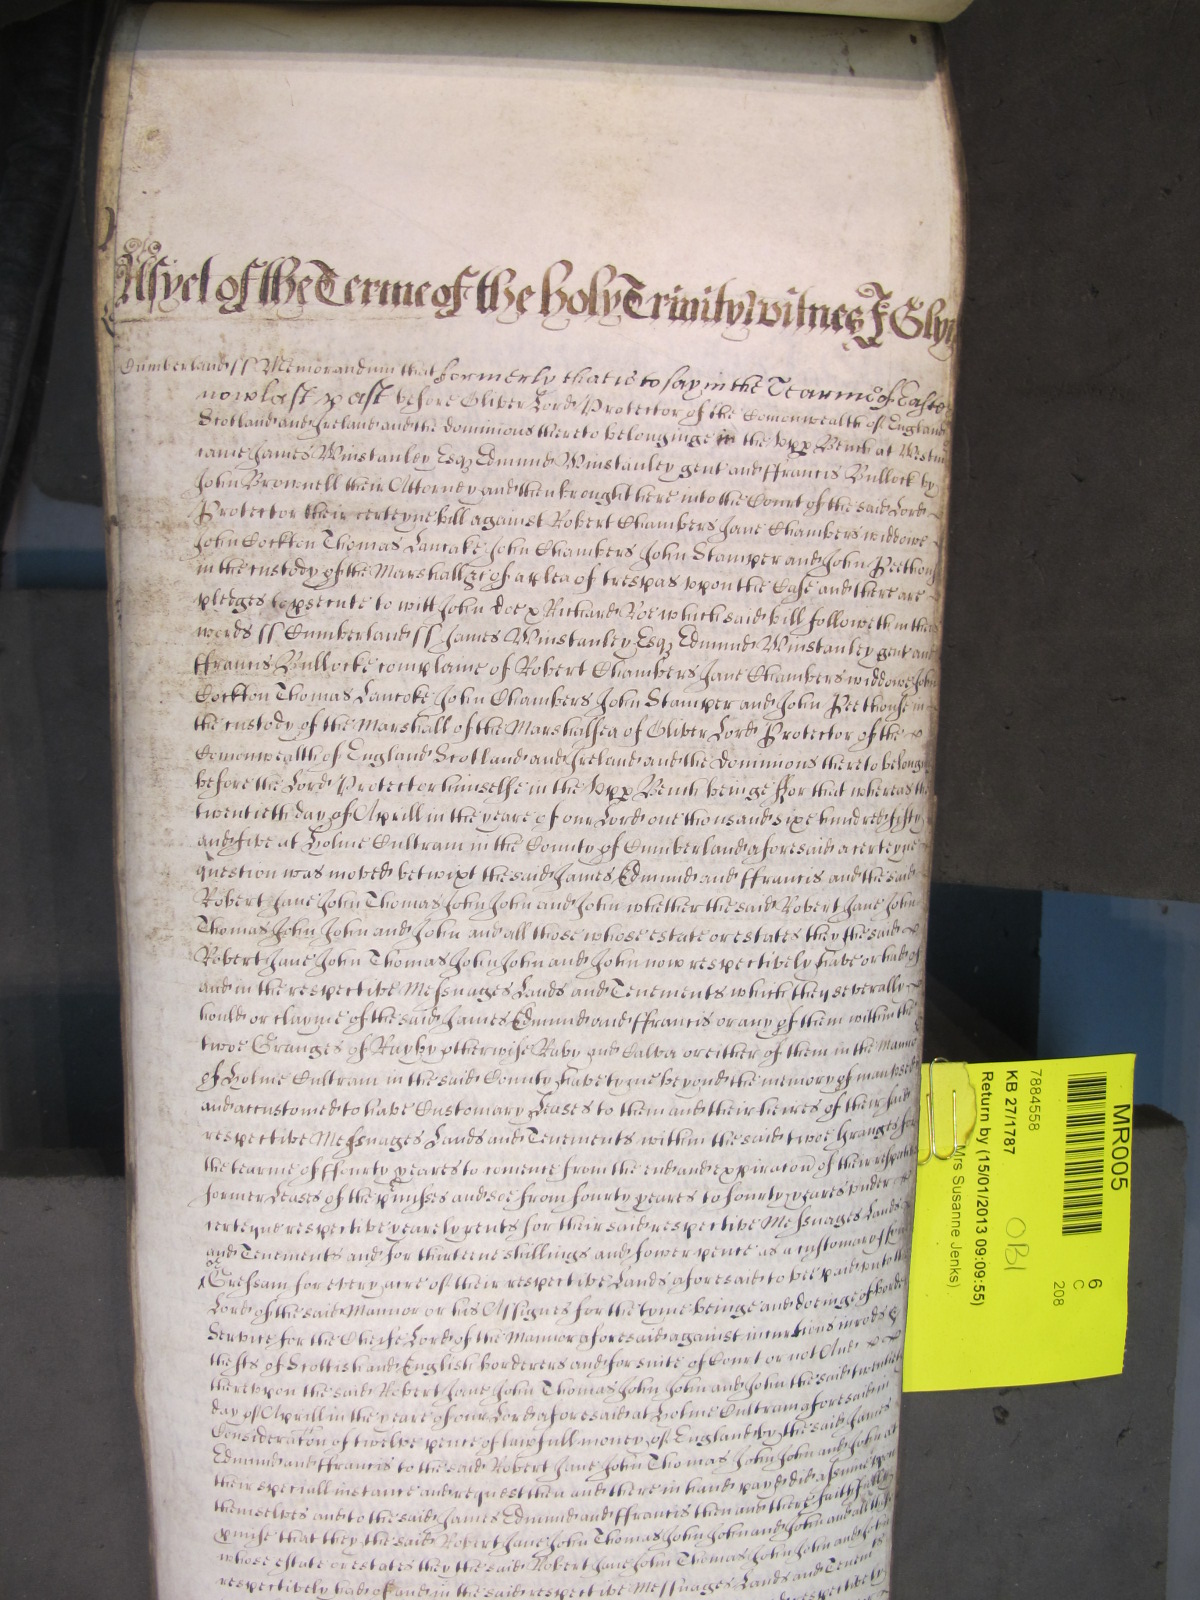 As yet of the Terme of the holy Trinity witnes J Glyn
Cumberland ss Memorandum that formerly that is to say in the Tearme of Easter
now last past before Oliver Lord Protector of the Comonwealth of England
Scotland and Ireland and the dominions thereto belonginge in the Upp Bench at Westm
came James Winstanley Esqz Edmund Winstanley gent and ffrancis Bullock by
John Brownell their Attorney and then brought here into the Court of the said Lord
Protector their certeyne bill against Robert Chambers Jane Chambers widdowe
John Cockton Thomas Lancake John Chambers John Stamper and John Beethom
in the custody of the Marshall &c of a plea of trespas upon the Case and there are
pledges to psecute to witt John doe & Richard Roe which said bill followeth in these
words ss Cumberland ss James Winstanley Esqz Edmund Winstanley gent and
ffrancis Bullocke complaine of Robert Chambers Jane Chambers widdowe John
Cockton Thomas Lancake John Chambers John Stamper and John Beethom in
the custody of the Marshall of the Marshalsea of Oliver Lord Protector of the
Comonwealth of England Scotland and Ireland and the dominions thereto belong
before the Lord Protector himselfe in the Upp Bench beinge ffor that whereas the
twentieth day of Aprill in the yeare of our Lord one thousand sixe hundred fifty
and five at Holme Cultram in the County of Cumberland aforesaid a certeyne
question was moved betwixt the said James Edmund and ffrancis and the said
Robert Jane John Thomas John John and John whether the said Robert Jane John
Thomas John John and John and all those whose estate or estates they the said
Robert Jane John Thomas John John and John now respectively have or had of
and in the respective Messuages Lands and Tenements which they severally
hould or clayme of the said James Edmund and ffrancis or any of them within the
twoe Granges of Rayby otherwise Raby and Calva or either of them in the Mannor
of Holme Cultram in the said County have tyme beyond the memory of man used
and accustomed to have Customary Leases to them and their heires of their said
respective Messuages Lands and Tenements within the said twoe Granges for
the tearme of ffourty yeares to comence from the end and expiracon of their respective
former Leases of the pmisses and soe from fourty yeares to fourty yeares under
certeyne respective yearely rents for their said respective Messuages Lands
and Tenements and for thirteene shillings and fower pence as a customary
Gressam for every acre of their respective Lands aforesaid to bee paid unto the
Lord of the said Mannor or his Assignes for the tyme beinge and doeinge of border
Service for the Cheife Lord of the Mannor aforesaid against incurtions inrodes &
thefts of Scottish and English borderers and for suite of Court or not And
thereupon the said Robert Jane John Thomas John John and John the said twentieth
day of Aprill in the yeare of our Lord aforesaid at Holme Cultram aforesaid in
Consideracon of twelve pence of lawfull money of England by the said James
Edmund and ffrancis to the said Robert Jane John Thomas John John and John at
their speciall instance and request then and there in hand payd did assume upon
themselves and to the said James Edmund and ffrancis then and there faithfully
pmise that they the said Robert Jane John Thomas John John and John and all those
whose estate or estates they the said Robert Jane John Thomas John John and John
respectively had of and in the said respective Messuages Lands and Tenem
MR005
6
C
208
7884558
KB 27/1787
Return by (15/01/2013 09:09:55)
Mrs Susanne Jenks)
OBI